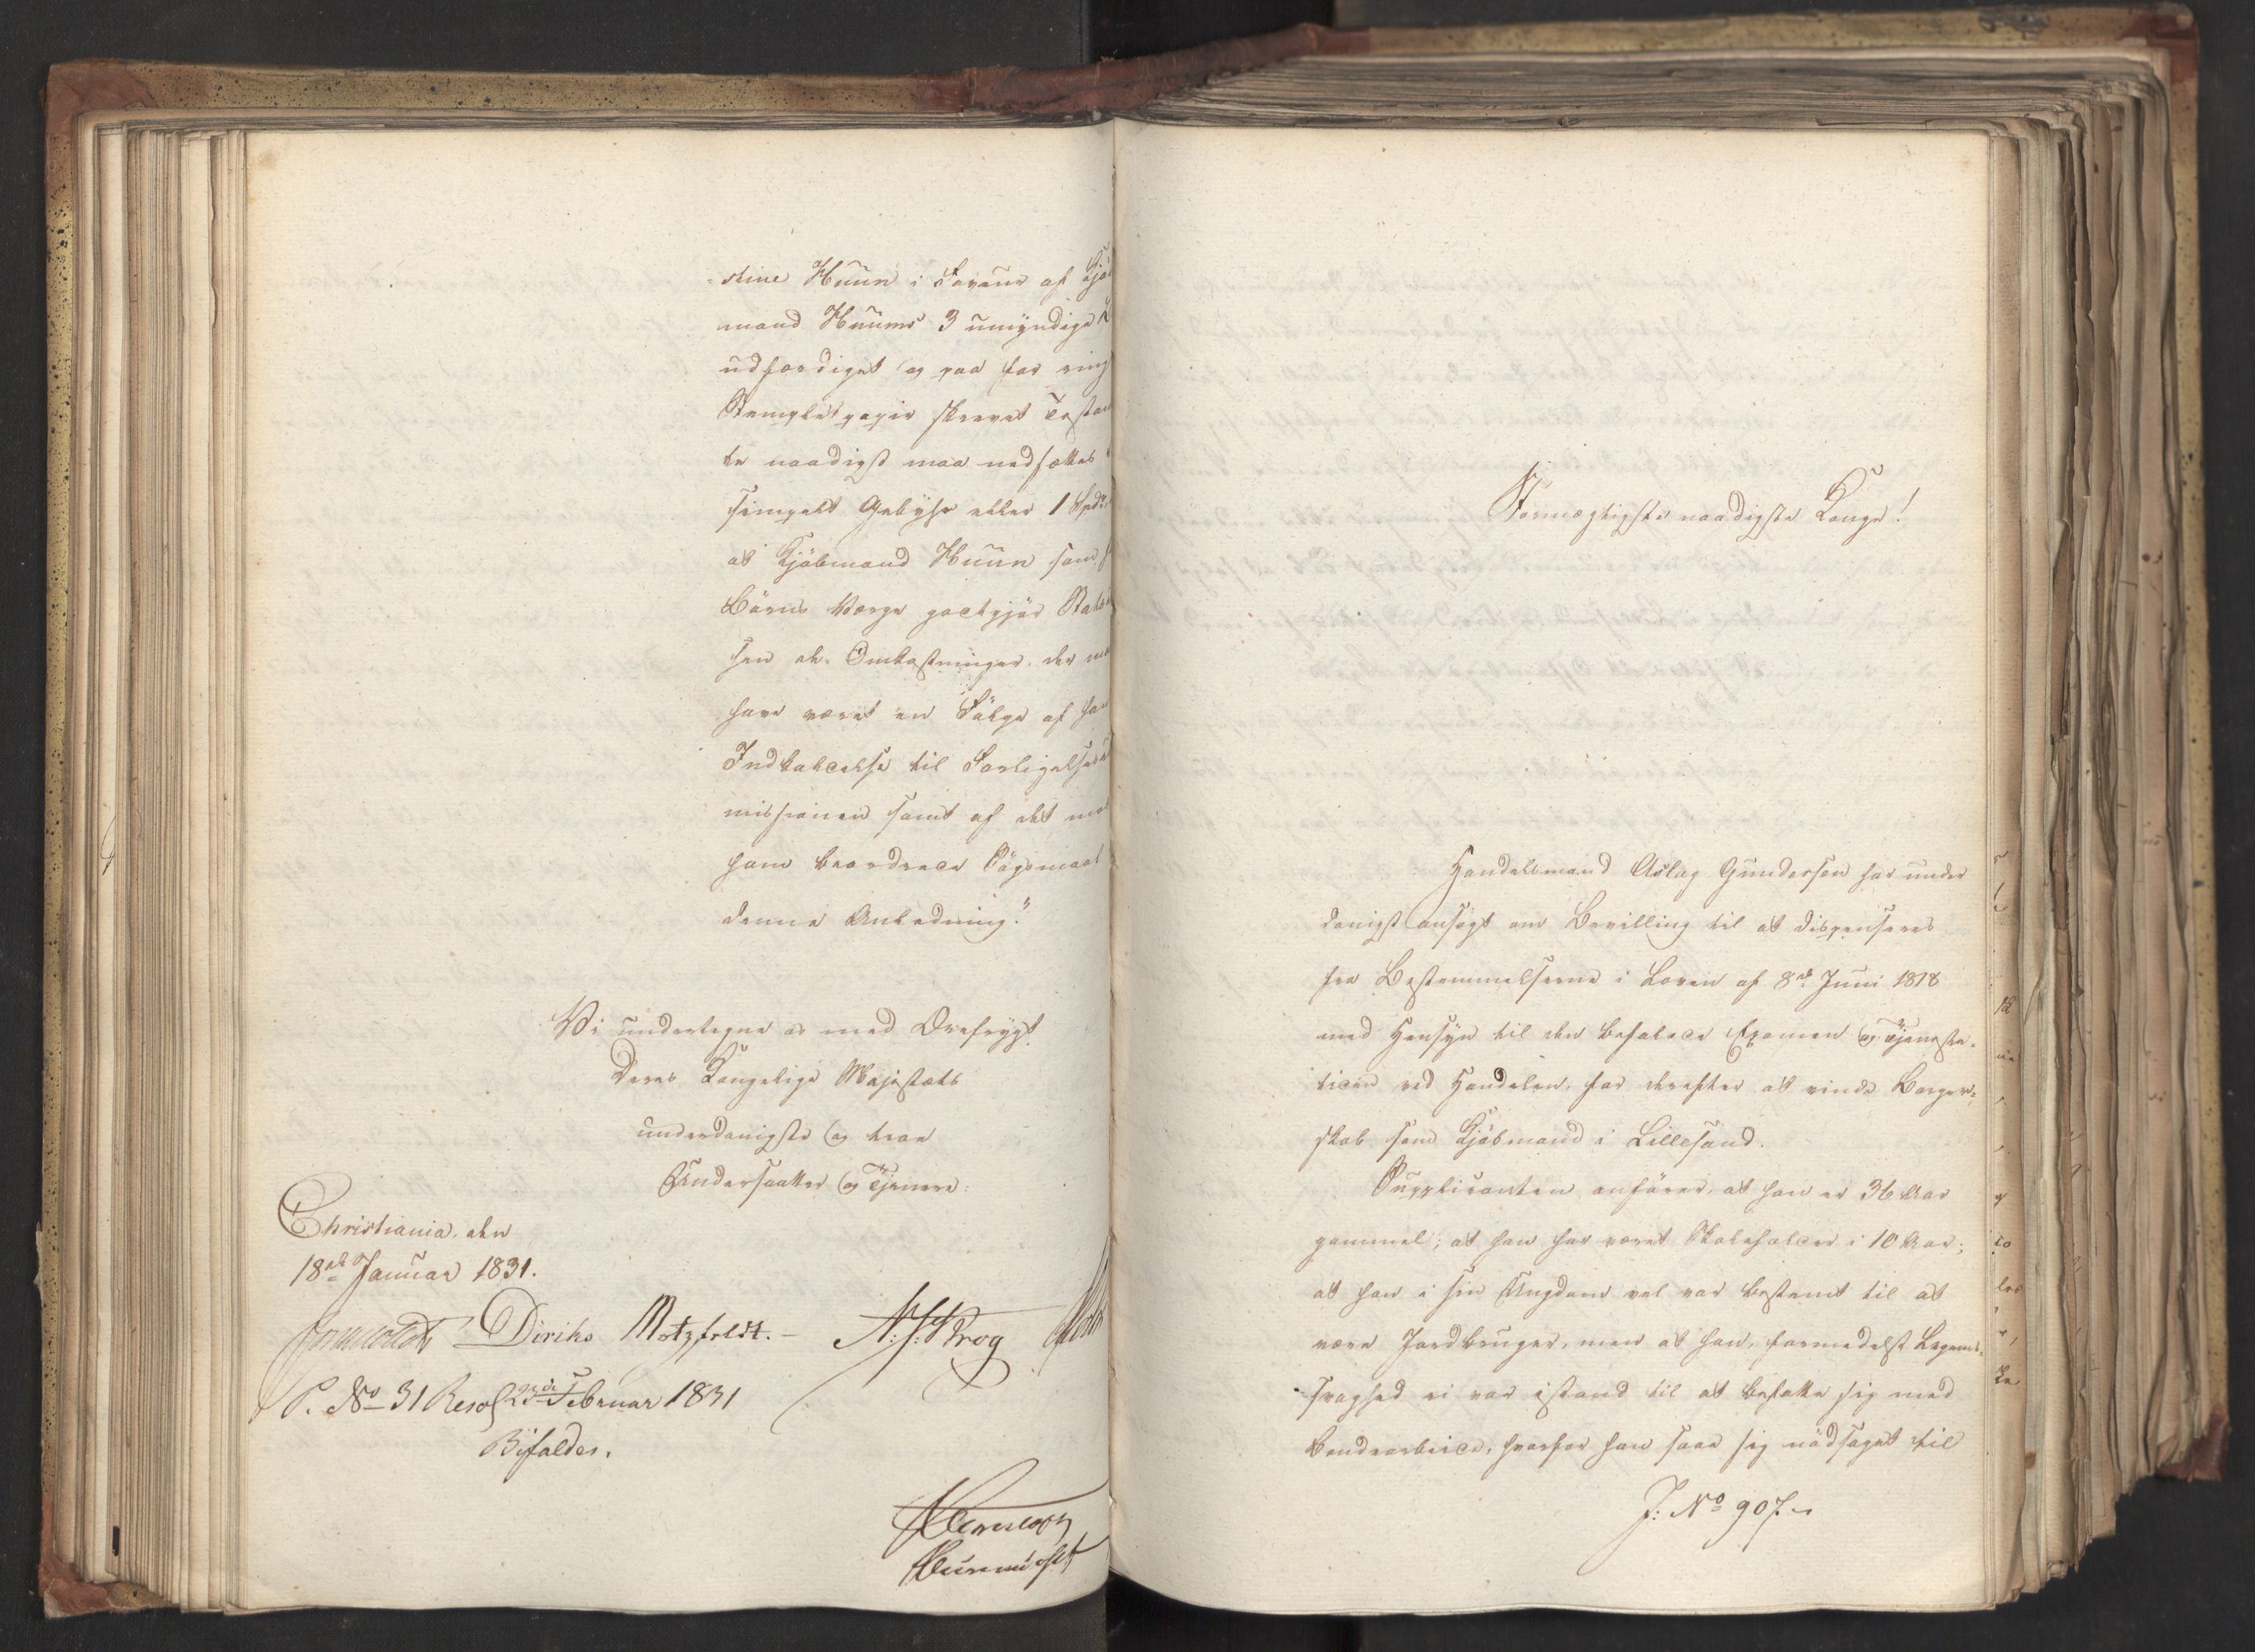 -stine Huun i Faveur af Kjøb
mand Huuns 3 umyndige
udfærdiget og paa for ring
Stempletpapir skrevet Testa
te naadigst maa nedsættes
simpelt Gebyhr eller 1 Spd
at Kjøbmand Huun som
Børns Værge godtgjør Stats
sen de Omkostninger, der
have været en Følge af han
Indkaldelse til Forligelses
missionen samt af det mod
ham beordrede Søgsmaal
denne Anledning."
Vi undertegne os med Ærefrygt
Deres Kongelige Majestæts
underdanigste og troe
Undersaatter og Tjenere:
Christiania, den
18de Januar 1831.
Diriks Motzfeldt. - N: J: Krog
P. No 31 Resol 23de Februar 1831
Bifaldes.
Stormægtigste naadigste Konge!
Handelsmand Aslag Gundersen har under
danigst ansøgt om Bevilling til at dispenseres
fra Bestemmelserne i Loven af 8de Juni 1818
med Hensyn til den befalede Examen og Tjeneste-
tiden ved Handelen, for derefter at vinde Borger-
skab som Kjøbmand i Lillesand.
Supplicanten anfører, at han er 36 Aar
gammel; at han har været Skoleholder i 10 Aar;
at han i sin Ungdom vel var bestemt til at
være Jordbruger, men at han, formedelst Legems-
svaghed ei var istand til at befatte sig med
Bondearbeide, hvorfor han saae sig nødsaget til
J: No 907.